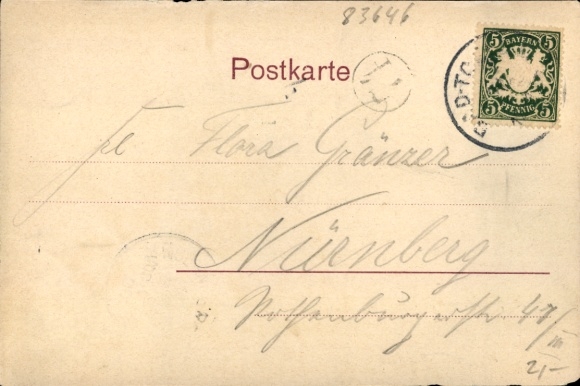 83646
Postkarte
5 BAYERN 5
5 PFENNIG 5
BAD-TÖ
Frl Flora Gränzer
Nürnberg
Rothenburgerstr 47/III
2,-